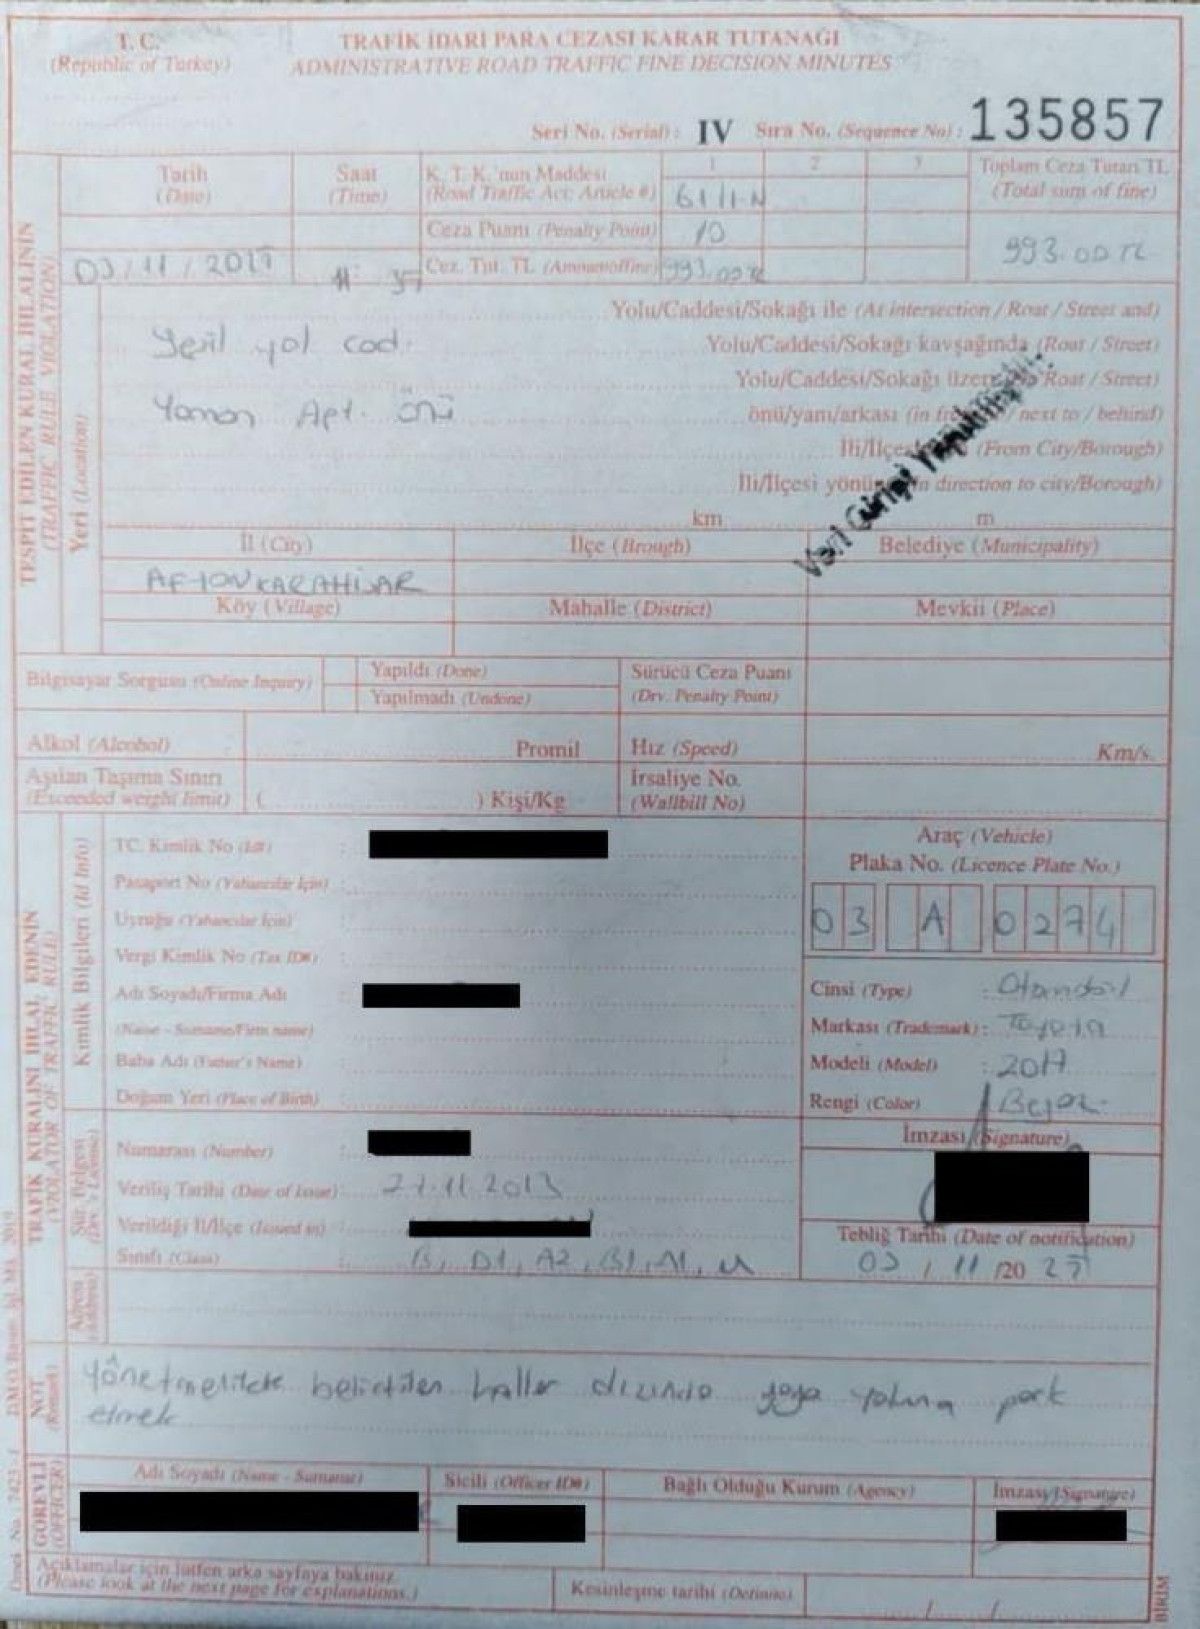 T. C.
(Republic of Turkey)
TRAFİK İDARİ PARA CEZASI KARAR TUTANAĞI
ADMINISTRATIVE ROAD TRAFFIC FINE DECISION MINUTES
Seri No. (Serial) : IV Sıra No. (Sequence No) : 135857
TESPİT EDİLEN KURAL İHLALİNİN
(TRAFFIC RULE VIOLATION)
Tarih
(Date)
Saat
(Time)
K. T. K.'nun Maddesi
(Road Traffic Acc Article #)
1 2 3
61/1-N
Toplam Ceza Tutarı TL
(Total sum of fine)
Ceza Puanı (Penalty Point) 10
03/11/20 : 37
Cez. Tut. TL 993.00 TL
993.00 TL
Yeri (Location)
Yolu/Caddesi/Sokağı ile (At intersection / Roar / Street and)
Yeşil yol cad. Yolu/Caddesi/Sokağı kavşağında (Roar / Street)
Yolu/Caddesi/Sokağı (Roar / Street)
Yaman Apt. önü önü/yanı/arkası / next to / behind)
(From City/Borough)
İli/İlçesi direction to city/Borough)
Veri Girişi Yapılmıştır.
km m
İl (City) İlçe (Brough) Belediye (Municipality)
AFYONKARAHİSAR
Köy (Village) Mahalle (District) Mevkii (Place)
Bilgisayar Sorgusu (Online Inquiry)
Yapıldı (Done)
Yapılmadı (Undone)
Sürücü Ceza Puanı
(Drv. Penalty Point)
Alkol (Alcohol) Promil Hız (Speed) Km/s.
Aşılan Taşıma Sınırı
(Exceeded weight limit) ( ) Kişi/Kg
İrsaliye No.
(Wallbill No)
TRAFİK KURALINI İHLAL EDENİN
(VIOLATOR OF TRAFFIC RULE)
Kimlik Bilgileri (Id Info)
TC. Kimlik No (Id#) :
Pasaport No (Yabancılar İçin) :
Uyruğu (Yabancılar İçin) :
Vergi Kimlik No (Tax ID#) :
Adı Soyadı/Firma Adı
(Name - Surname/Firm name)
Baba Adı (Father's Name)
Doğum Yeri (Place of Birth)
Araç (Vehicle)
Plaka No. (Licence Plate No.)
03 A 0274
Cinsi (Type) : Otomobil
Markası (Trademark) : Toyota
Modeli (Model) : 2017
Rengi (Color) Beyaz
İmzası (Signature)
Sür. Belgesi
(Drv.'s License)
Numarası (Number) :
Veriliş Tarihi (Date of Issue) : 27.11.2013
Verildiği İl/İlçe (Issued in) :
Sınıfı (Class) : B, D1, A2, B1, M
Tebliğ Tarihi (Date of notification)
03 / 11 /20
NOT
(Remark)
Yönetmelikte belirtilen haller dışında yaya yoluna park
etmek
GÖREVLİ
(OFFICER)
Adı Soyadı (Name - Surname) Sicili (Officer ID#) Bağlı Olduğu Kurum (Agency) İmzası (Signature)
Açıklamalar için lütfen arka sayfaya bakınız.
(Please look at the next page for explanations.)
Kesinleşme tarihi
/ /
BİRİM